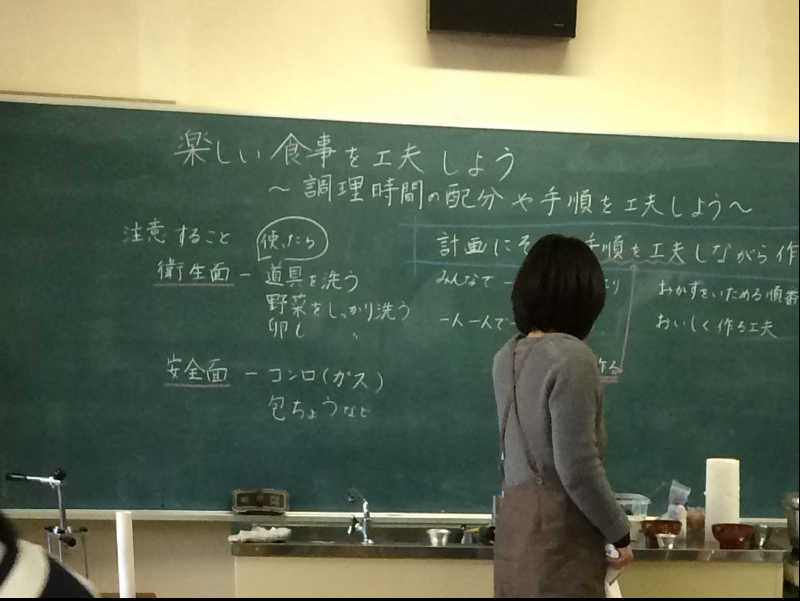 楽しい食事を工夫しよう
〜調理時間の配分や手順を工夫しよう〜
注意すること 使ったら
衛生面 － 道具を洗う
野菜をしっかり洗う
卵も 〃
安全面 － コンロ(ガス)
包ちょうなど
計画にそ 手順を工夫しながら作
みんなで － り
一人一人で
おかずをいためる順番
おいしく作る工夫